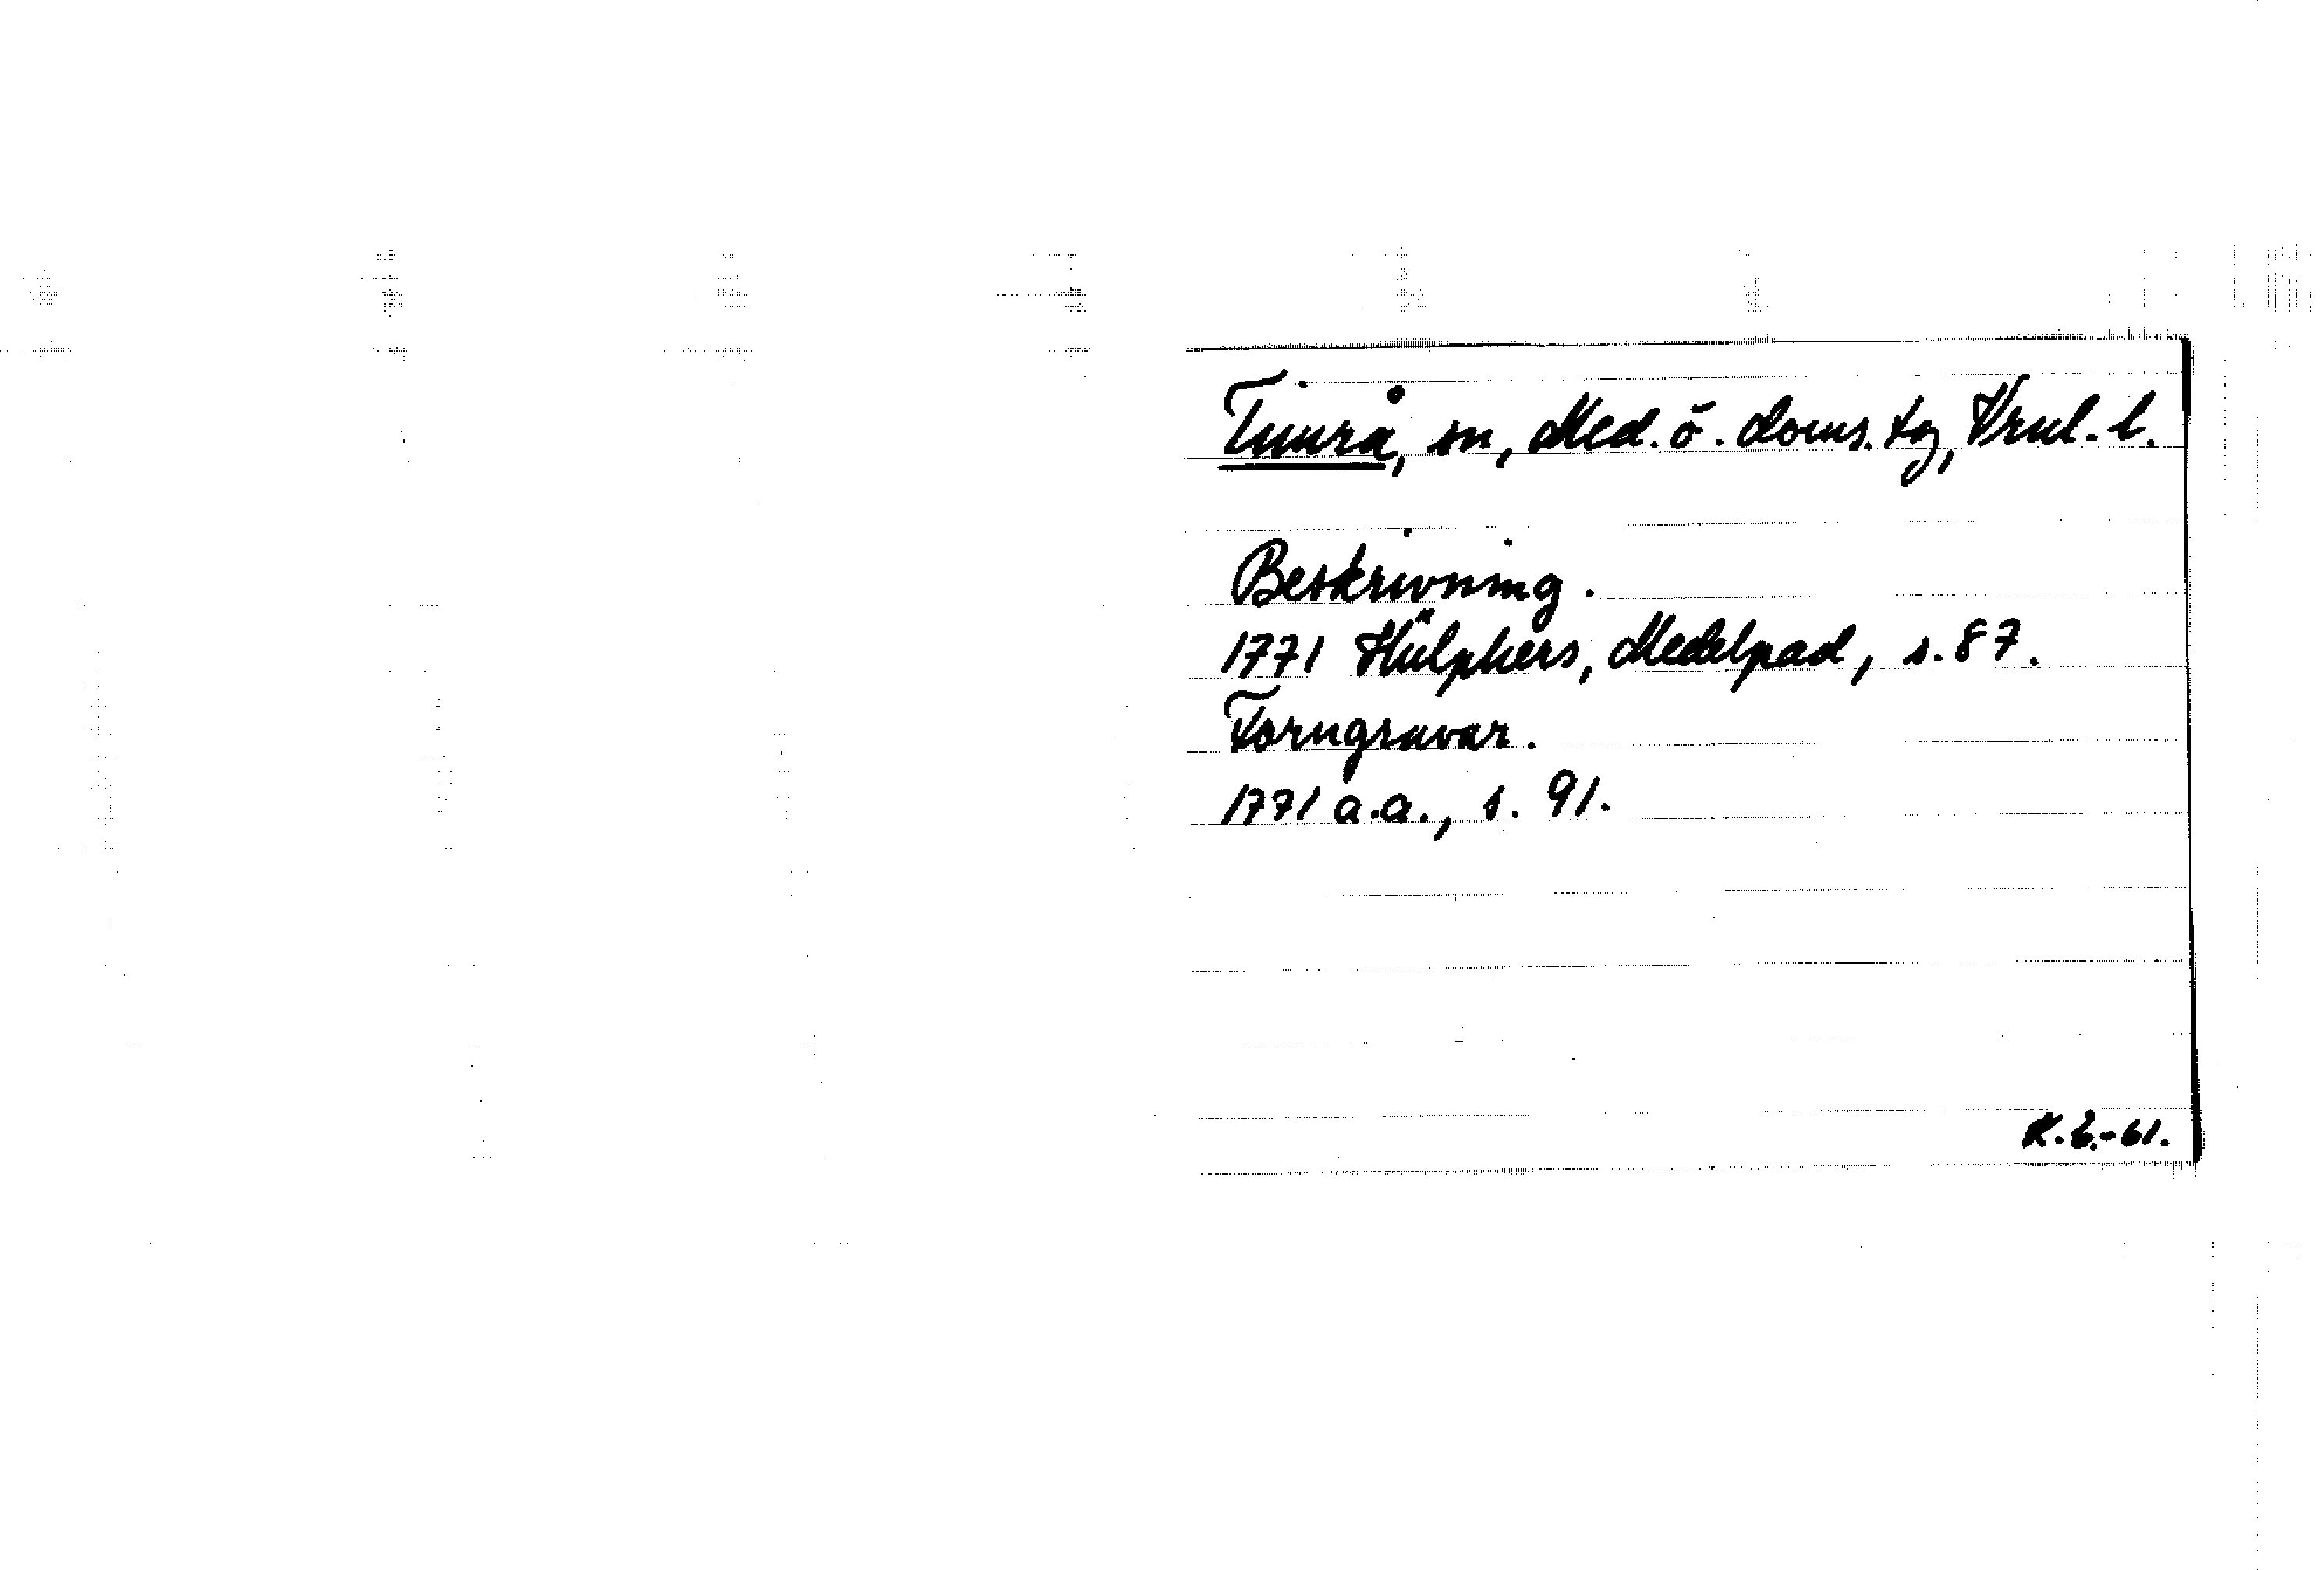 Timrå, sn, Med. ö. doms. tg, Vrnl. l.
Beskrivning.
1771 Hülphers, Medelpad, s. 87.
Forngravar.
1771 a.a., s. 91.
K. E.-61.